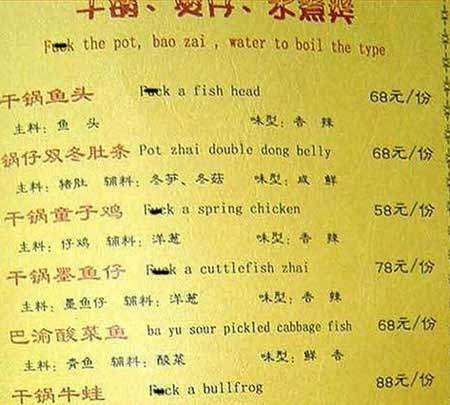 Fuck the pot, bao zai , water to boil the type
干锅鱼头 Fuck a fish head 68元/份
主料：鱼 头 味型：香 辣
锅仔双冬肚条 Pot zhai double dong belly 68元/份
主料：猪肚 辅料：冬笋、冬菇 味型：咸 鲜
干锅童子鸡 Fuck a spring chicken 58元/份
主料：仔鸡 辅料：洋葱 味型：香 辣
干锅墨鱼仔 Fuck a cuttlefish zhai 78元/份
主料：墨鱼仔 辅料：洋葱 味型：香 辣
巴渝酸菜鱼 ba yu sour pickled cabbage fish 68元/份
主料：青鱼 辅料：酸菜 味型：鲜 香
干锅牛蛙 Fuck a bullfrog 88元/份